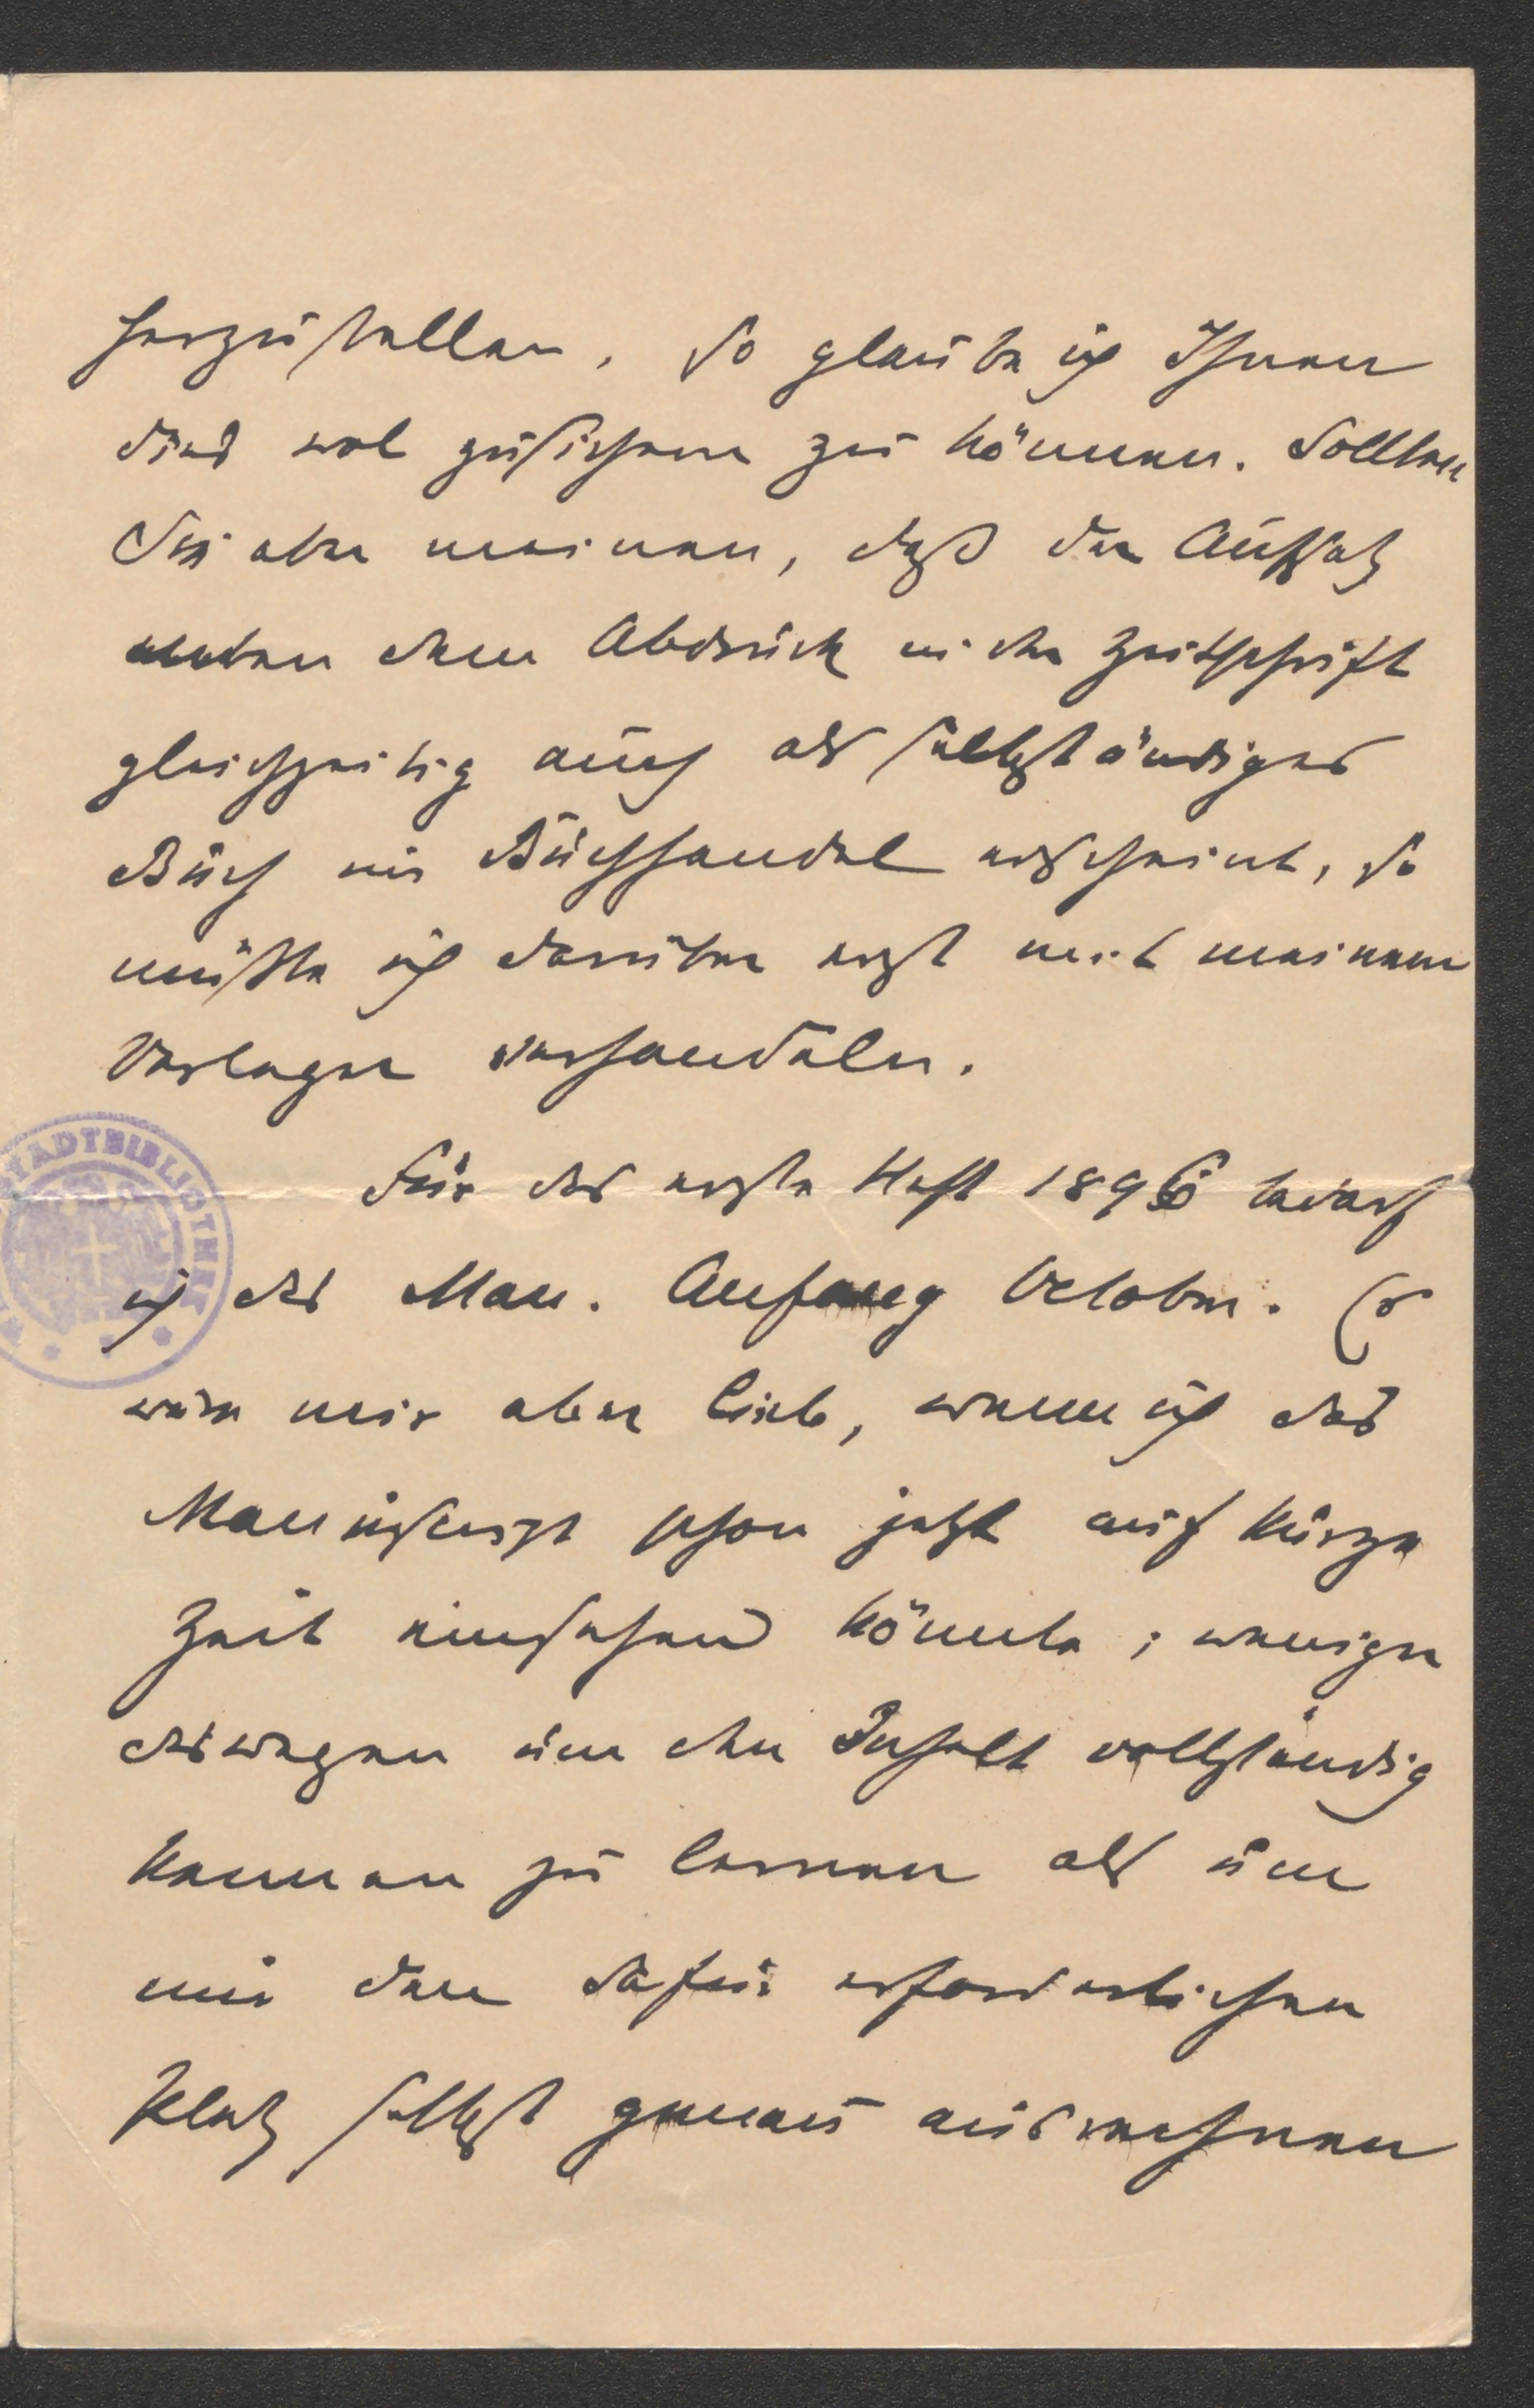 herzustellen, so glaube ich Ihnen
dies wol zusichern zu können. Sollten
Sie aber meinen, daß der Aufsatz
neben dem Abdruck in der Zeitschrift
gleichzeitig auch als selbständiges
Buch im Buchhandel erscheint, so
müßte ich darüber erst mit meinem
Verleger verhandeln.
Für das erste Heft 1896 bedarf
ich das Man. Anfang October. Es
wäre mir aber lieb, wenn ich das
Manuscript schon jetzt auf kurze
Zeit einsehen könnte; weniger
deswegen um den Inhalt vollständig
kennen zu lernen als um
mir den dafür erforderlichen
Platz selbst genau auszurechnen
STADTBIBLIOTHEK